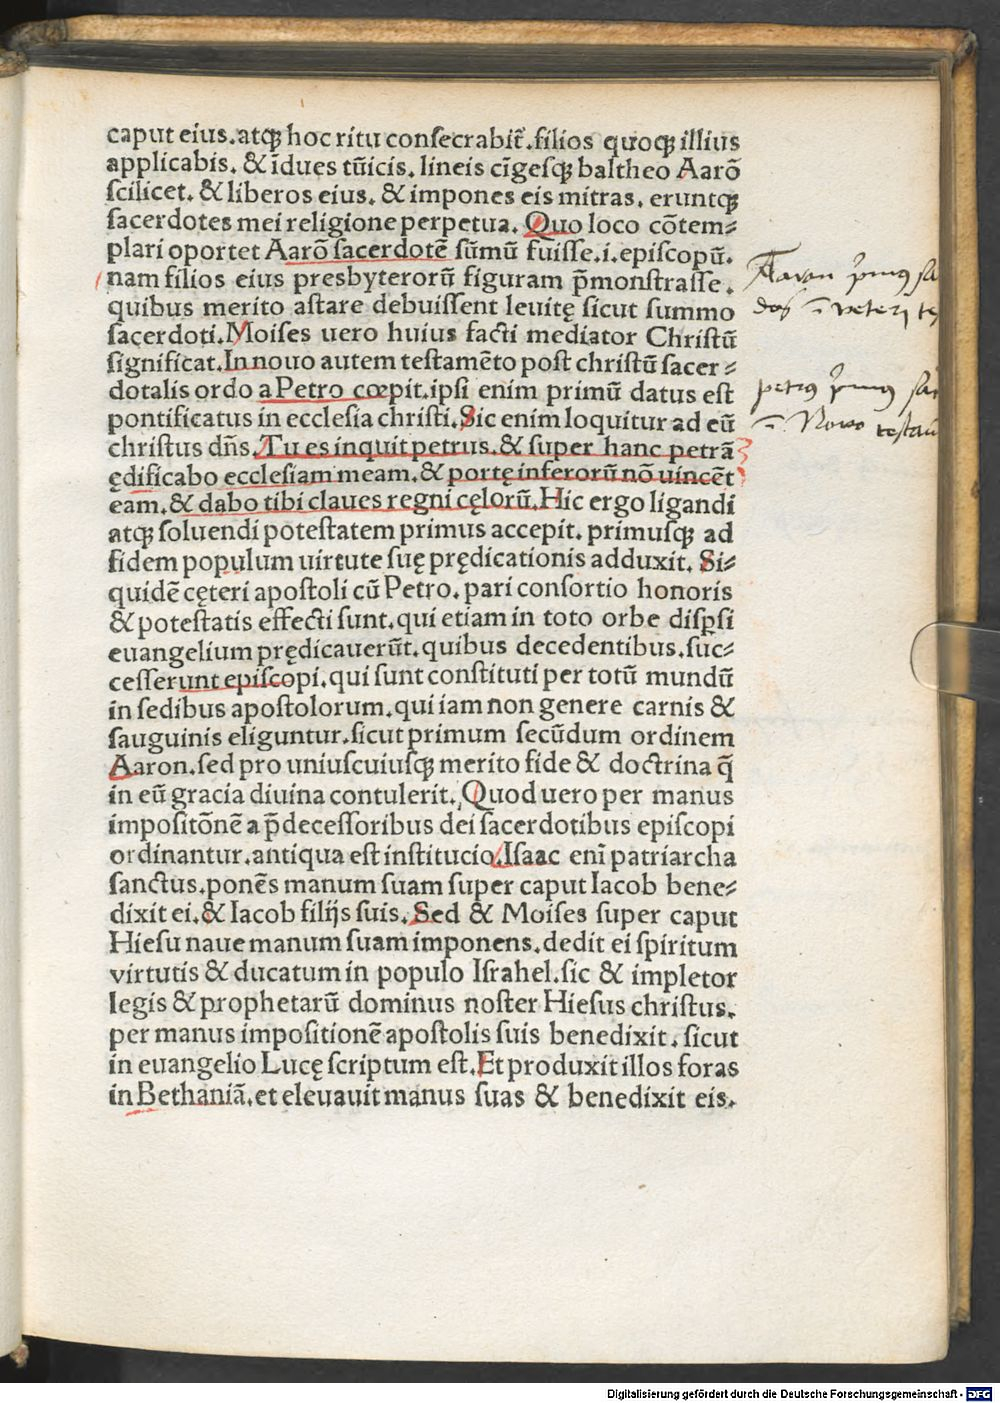 caput eius.atqꝫ hoc ritu conſecrabit̃.filios quoqꝫ illius
applicabis. & īdues tūicis. lineis cīgeſqꝫ baltheo Aarō
ſcilicet. & liberos eius. & impones eis mitras. eruntqꝫ
ſacerdotes mei religione perpetua. Quo loco cōtem⸗
plari oportet Aarō ſacerdotē ſūmū fuiſſe.i.epiſcopū.
nam filios eius presbyterorū figuram p̄monſtraſſe.
quibus merito aſtare debuiſſent leuitę ſicut ſummo
ſacerdoti.Moiſes uero huius facti mediator Chriſtū
ſignificat.In nouo autem teſtamēto poſt chriſtū ſacer⸗
dotalis ordo a Petro cœpit.ipſi enim primū datus eſt
pontificatus in eccleſia chriſti.Sic enim loquitur ad eū
chriſtus dn̄s.Tu es inquit petrus.& ſuper hanc petrā
ędificabo eccleſiam meam.& portę inferorū nō uincēt
eam.& dabo tibi claues regni cęlorū.Hic ergo ligandi
atqꝫ ſoluendi poteſtatem primus accepit. primuſqꝫ ad
fidem populum uirtute ſuę prędicationis adduxit. Si⸗
quidē cęteri apoſtoli cū Petro. pari conſortio honoris
& poteſtatis effecti ſunt.qui etiam in toto orbe diſꝑſi
euangelium prędicauerūt.quibus decedentibus.ſuc⸗
ceſſerunt epiſcopi.qui ſunt conſtituti per totū mundū
in ſedibus apoſtolorum.qui iam non genere carnis &
ſauguinis eliguntur.ſicut primum ſecūdum ordinem
Aaron.ſed pro uniuſcuiuſqꝫ merito fide & doctrina q̄
in eū gracia diuina contulerit. Quod uero per manus
impoſitōnē a p̄deceſſoribus dei ſacerdotibus epiſcopi
ordinantur.antiqua eſt inſtitucio.Iſaac enī patriarcha
ſanctus.ponēs manum ſuam ſuper caput Iacob bene⸗
dixit ei.& Iacob filijs ſuis. Sed & Moiſes ſuper caput
Hieſu naue manum ſuam imponens.dedit ei ſpiritum
virtutis & ducatum in populo Iſrahel.ſic & impletor
legis & prophetarū dominus noſter Hieſus chriſtus.
per manus impoſitionē apoſtolis ſuis benedixit. ſicut
in euangelio Lucę ſcriptum eſt.Et produxit illos foras
in Bethaniā.et eleuauit manus ſuas & benedixit eis.
Aaron p̄mus ſa
dos ī veteri te
petrus p̄mus ſa
ī Novo teſtam
Digitalisierung gefördert durch die Deutsche Forschungsgemeinschaft - DFG